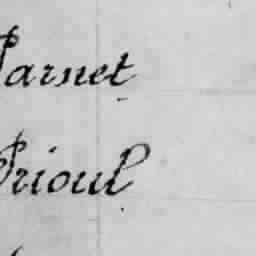 Jarnet
Prioul